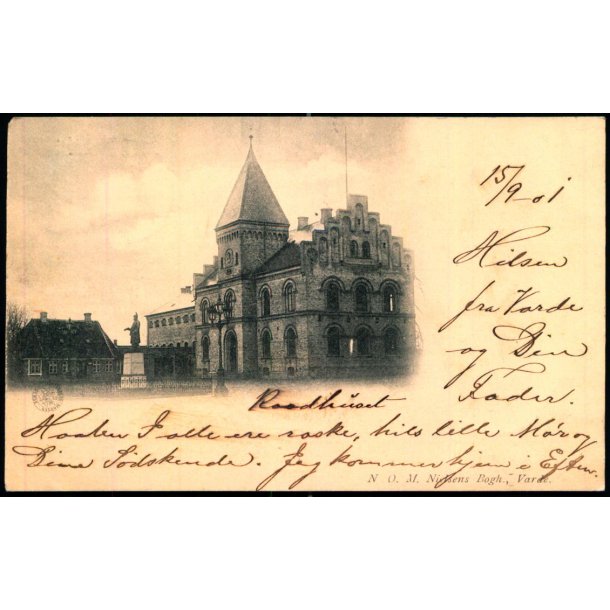 15/9-01
Hilsen
fra Varde
og Din
Fader.
Raadhuset
Haaber I alle ere raske, hils lille Mor og
Dine Södskende. Jeg kommer hjem i Efterm.
N. O. M. Nielsens Bogh., Varde.